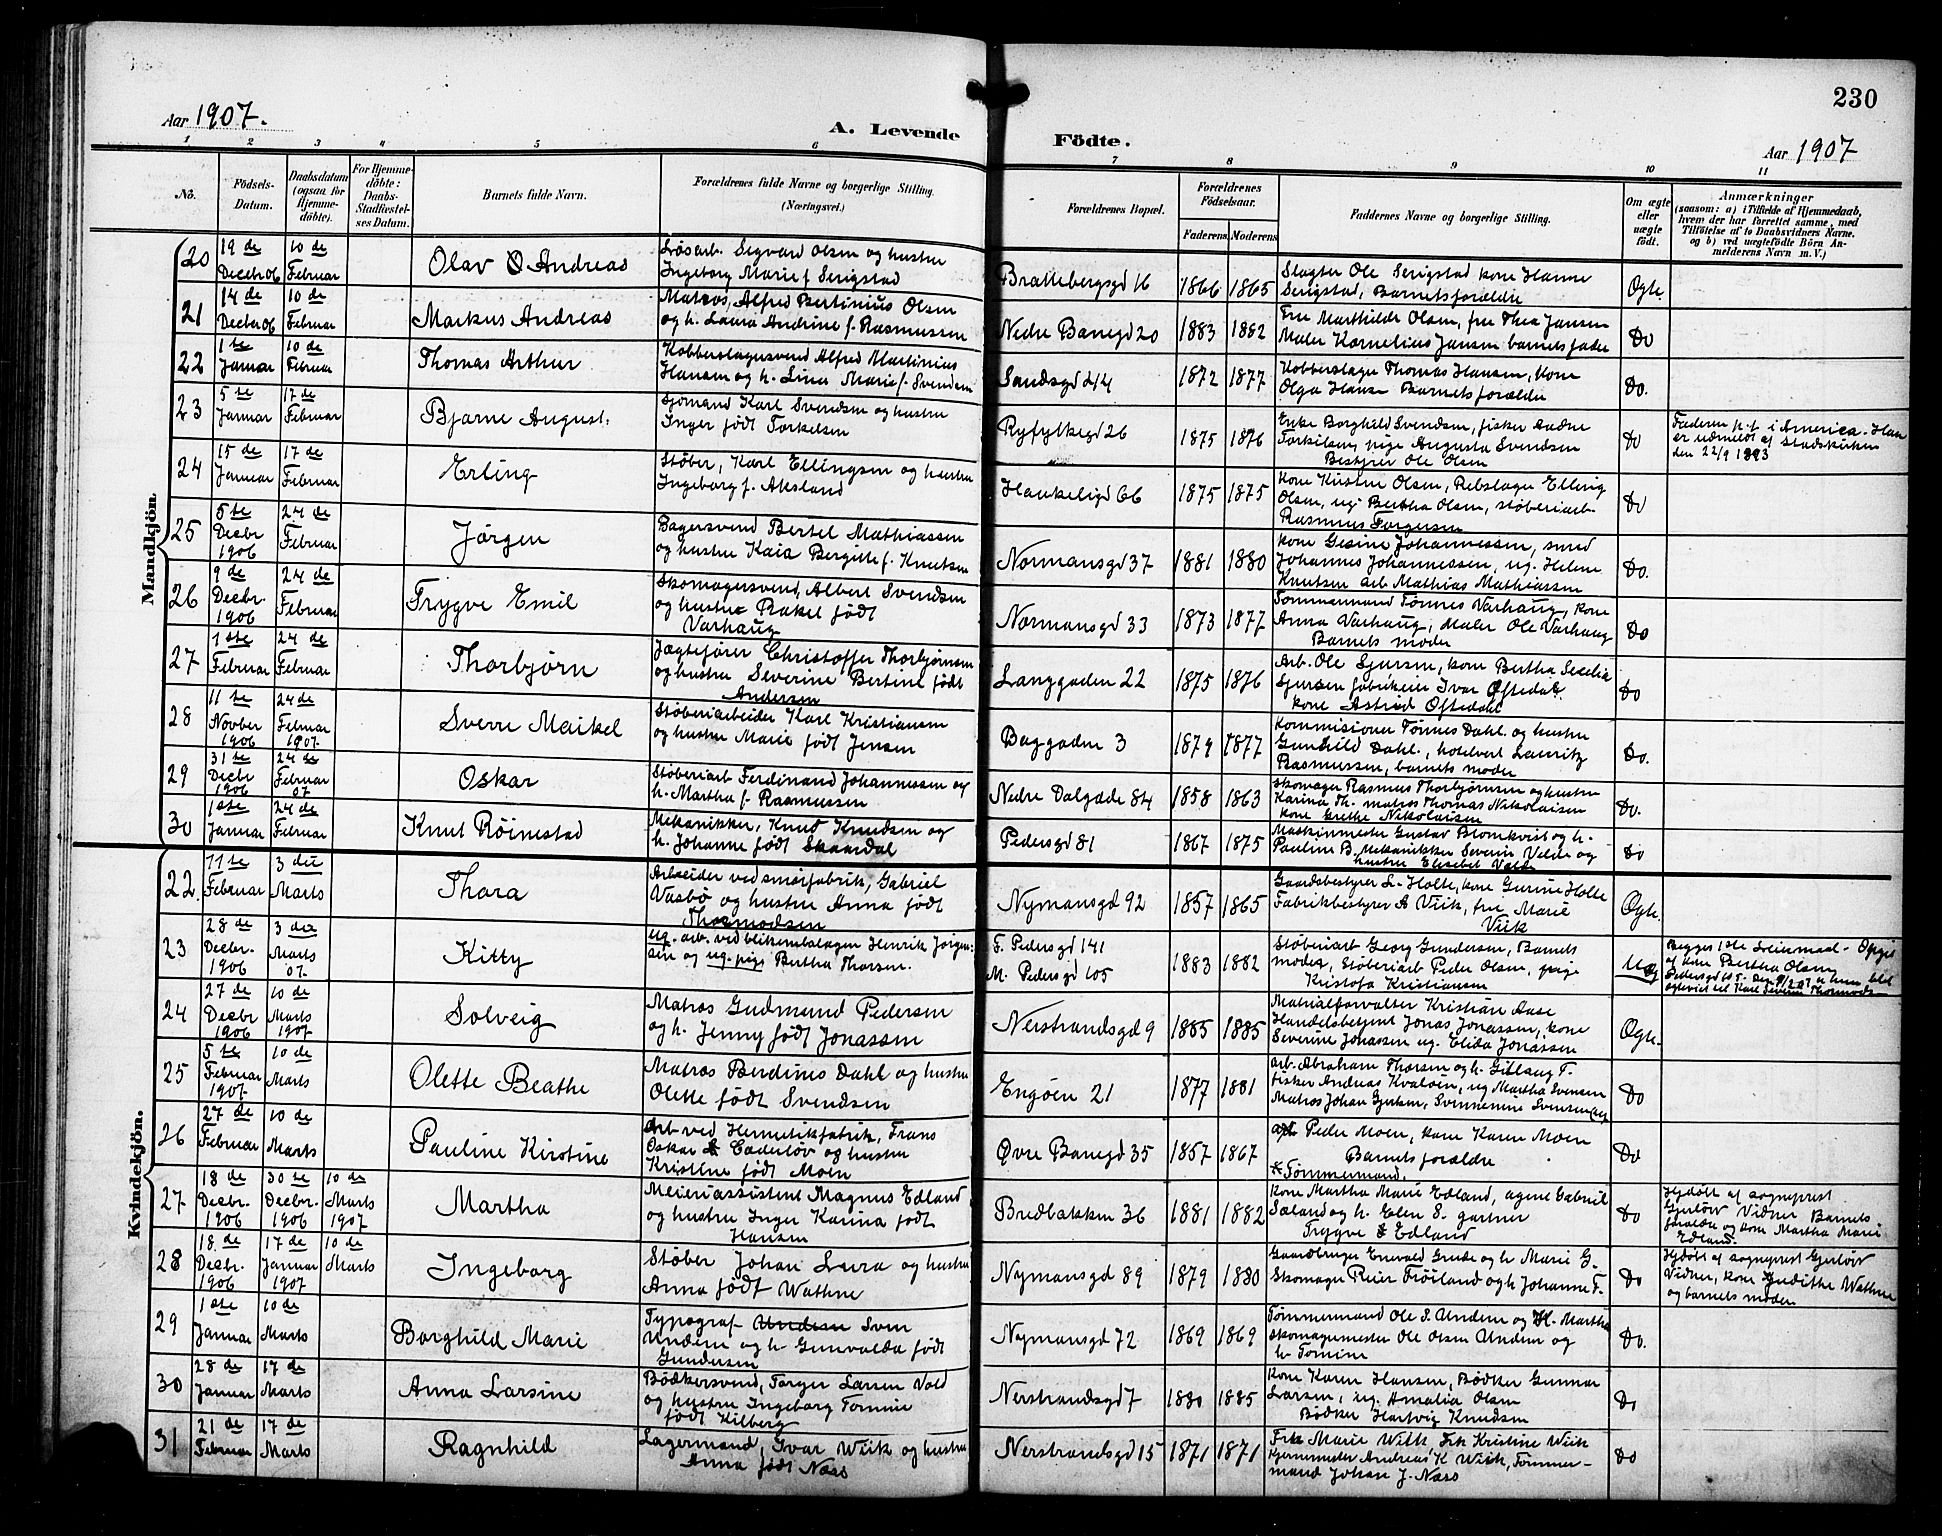 230
Aar 1907.
A. Levende Födte.
Aar 1907
1 2 3 4 5 6 7 8 9 10 11
No.
Födsels-Datum.
Daabsdatum (ogsaa for Hjemmedöbte).
For Hjemmedöbte: Daabs-Stadfæstelses Datum.
Barnets fulde Navn.
Forældrenes fulde Navne og borgerlige Stilling. (Næringsvei.)
Forældrenes Bopæl.
Forældrenes Födselsaar.
Faderens. Moderens.
Faddernes Navne og borgerlige Stilling.
Om ægte eller uægte födt.
Anmærkninger (saasom: a) i Tilfælde af Hjemmedaab, hvem der har forrettet samme, med Tilföielse af to Daabsvidners Navne. og b) ved uægtefödte Börn Anmelderens Navn m. V.)
Mandkjön.
20 19 de Decbr 06 10 de Februar Olav Andreas
Løsarb. Sigvard Olsen og hustru
Ingeborg Marie f. Serigstad
Brattebergsgd 16 1866 1865
Slagter Ole Serigstad kone Hanne
Serigstad, Barnets forældre
Ægte.
21 14 de Decbr 06 10 de Februar Markus Andreas
Matros, Alfred Bertinius Olsen
og h. Laura Andrine f. Rasmussen
Nedre Banegd 20 1883 1882
Fru Marthilde Olsen, fru Thea Jansen
Maler Kornelius Jansen barnets fader
Do
22 1ste Januar 10 de Februar Thomas Arthur
Kobberslagersvend Alfred Martinius
Hansen og h. Lina Marie f. Svendsen
Sandsgd 44 1872 1877
Kobberslager Thomas Hansen, kone
Olga Hansen Barnets forældre
Do.
23 5 te Januar 17 de Februar Bjarne August.
Sjømand Karl Svendsen og hustru
Inger født Torkelsen
Ryfylkegd 26 1875 1876
Enke Borghild Svendsen, fisker
Torkilsen, pige Augusta Svendsen
Bestyrer Ole Olsen
Do
Faderen p.t. i America. Han
er udmeldt af Stadskirken
den 22/9 1893
24 15 de Januar 17 de Februar Erling
Støber, Karl Ellingsen og hustru
Ingeborg f. Aksland
Haukeligd 66 1875 1875
Kone Kirstine Olsen, Rebslager Elling
Olsen, ug. Bertha Olsen, støberiarb.
Rasmus Torgersen
Do
25 5te Decbr 1906 24 de Februar Jørgen
Bagersvend Bertel Mathiassen
og hustru Kaia Bergitte f. Knutsen
Normansgd 37 1881 1880
Kone Gesine Johannessen, smed
Johannes Johannessen, ug. Helene
Knutsen arb Mathias Mathiassen
Do.
26 9 de Decbr. 1906 24 de Februar Trygve Emil
Skomagersvend, Albert Svendsen
og hustru Rakel født
Varhaug
Normansgd 33 1873 1877
Tømmermand Tønnes Varhaug, kone
Anna Varhaug, Maler Ole Varhaug
Barnets moder
Do
27 1ste Februar 24 de Februar Thorbjørn
Jægtefører Christoffer Thorbjørnsen
og hustru Severine Bertine født
Andersen
Langgaden 22 1875 1876
Arb. Ole Sjursen, kone Bertha Secelia
Sjursen fabrikeier Ivar Oftedal
kone Astrid Oftedal
Do
28 11 te Novber 1906 24 de Februar 1907. Sverre Maikel
Støberiarbeider Karl Kristiansen
og hustru Marie født Jensen
Baggaden 3 1879 1877
Kommisioner Tønnes Dahl og hustru
Gunhild Dahl, hotelvert Lauritz
Rasmussen, barnets moder
Do.
29 31 te Decbr 1906 24 de Februar 07 Oskar
Støberiarb Ferdinand Johannessen og
h. Martha f. Rasmussen
Nedre Dalgade 84 1858 1863
Skomager Rasmus Thorbjørnsen og hustru
Karina Th. matros Thomas Nikolaisen
kone Grethe Nikolaisen
Do.
30 1ste Januar 24 de Februar Knut Røinestad
Mekanikker, Knud Knudsen og
h. Johanne født Skaardal
Pedersgd 81 1867 1875
Maskinmester Gustav Blomkvist og h.
Pauline B. Mekanikker Severin Velde og
hustru Elisabet Velde
Do
Kvindekjön.
22. 11te Februar 3 die Marts Thora
Arbeider ved smørfabrik, Gabriel
Vasbø og hustru Anna født
Thormodsen
Nymansgd 92 1857 1865
Gaardsbestyrer L. Holte, kone Gurine Holte
Fabrikbestyrer A Viik, fru Marie
Viik
Ægte.
23 28 de Decbr. 1906 3 die Marts 07. Kitty
ug. arb. ved blikemballagen Henrik Jørgensen
og ug. pige Bertha Thorsen.
F. Pedersgd 141
M. Pedersgd 105
1883 1882
Støberiarb Georg Gundersen, Barnets
moder, Støberiarb Peder Olsen, pige
Kristofa Kristiansen
Uæg
Begges 1ste Leiermaal - Opgit
af kone Bertha Olsen
24 27 de Decbr 1906 10 de Marts 1907 Solveig
Matros Gudmund Pedersen
og h. Jenny født Jonassen
Nerstrandsgd 9 1885 1885
Matrialforvalter Kristian Aase
Handelsbetjent Jonas Jonassen, kone
Severine Jonassen ug. Elida Jonassen
Ægte.
25 5te Februar 1907 10 de Marts Olette Beathe
Matros Berdines Dahl og hustru
Olette født Svendsen
Engøen 21 1877 1881
arb. Abraham Thorsen og h. T.
fisker Andreas Kvaløen, ug Martha Svensen
Matros Johan
Do
26 27 de Februar 10 de Marts Pauline Kirstine
Arb ved Hermetikfabrik, Frans
Oskar og hustru
Kristine født Moen
Øvre Banegd 35 1857 1867
Peder Moen, kone Karen Moen
Barnets forældre
* Tømmermand.
Do
27 18 de Decbr. 1906 30 te Decbr. 1906 10 de Marts 1907 Martha
Meieriassistent Magnus Edland
og hustru Inger Karina født
Hansen
Bredbakken 36 1881 1882
Kone Martha Marie Edland, agent Gabriel
Sæland og h. Elen S. gartner
Trygve Edland
Do
Hjdøbt af sogneprest
Gjerløv Vidner Barnets
forældre og kone Martha Marie
Edland.
28 18. de Decbr. 1906 17 de Januar 1907 10 de Marts Ingeborg
Støber Johan Laura og hustru
Anna født Wathne
Nymansgd 89 1879 1880
Gaardbruger Enevald Grude og h Marie G.
Skomager Peier Frøiland og h Johanne F.
Do
Hjdøbt af sogneprest Gjerløv
Vidner, kone Judithe Wathne
og barnets moder
29 1 ste Januar 10 de Marts Borghild Marie
Typograf Sven
Undem og h Gunvalda født
Gundersen
Nymansgd 72 1869 1869
Tømmermand Ole S. Undem og H. Martha
Skomagermester Ole Olsen Undem og
h Tomine
Do.
30 28 de Januar 17 de Marts Anna Larsine
Bødkersvend, Torger Larsen Vold
og hustru Ingeborg Tomine
født Kilberg
Nerstrandsgd 7 1880 1885
Kone Karen Hansen, Bødker Gunnar
Larsen, ug. Amalia Olsen
Bødker Hartvig Knudsen
Do
31 21 de Februar 17 de Marts Ragnhild
Lagermand, Ivar Wiik og hustru
Anna født Næss
Nerstrandsgd 15 1871 1871
Frk Marie Wiik, Frk Kristine Wiik
Andreas K Wiik, Tømmermand
Johan J. Næss
Do